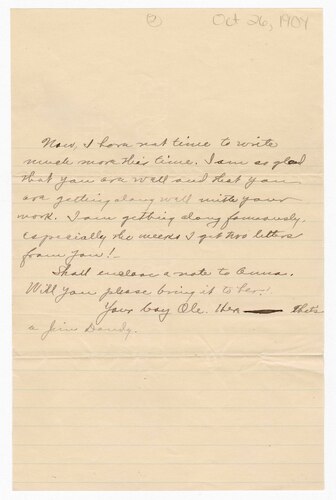 ② Oct 26, 1904
Now, I have not time to write
much more this time. I am so glad
that you are well and that you
are getting along well with your
work. I am getting along famously.
especially the weeks I get two letters
from you!-
Shall enclose a note to Anna.
Will you please bring it to her?
Your boy Ole. thats
a Jim Dandy.